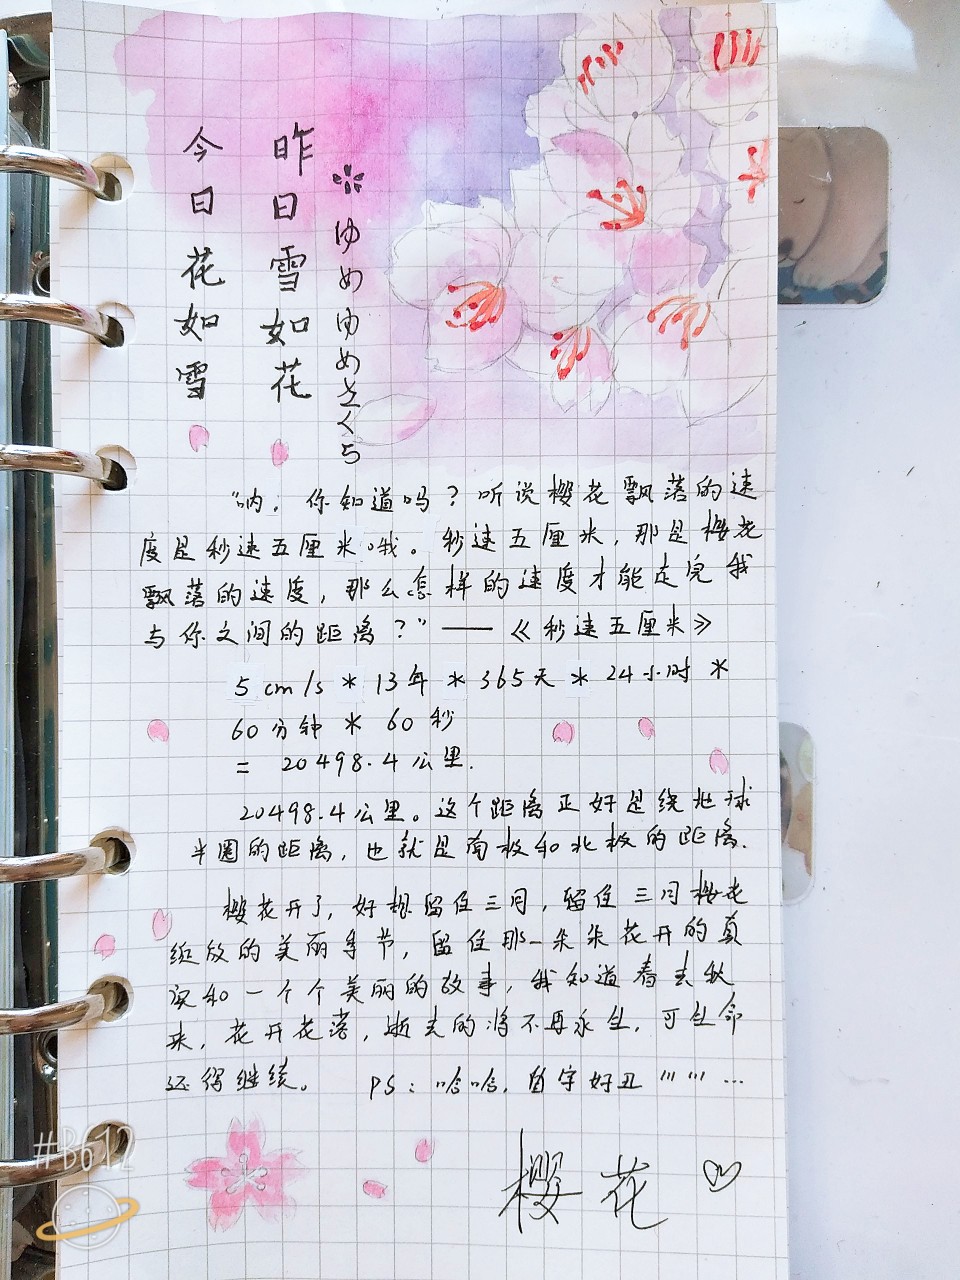 ゆめゆめさくら
昨日雪如花
今日花如雪
“呐，你知道吗？听说樱花飘落的速
度是秒速五厘米哦。秒速五厘米，那是樱花
飘落的速度，那么怎样的速度才能走完我
与你之间的距离？”——《秒速五厘米》
5 cm/s * 13年 * 365天 * 24小时 *
60分钟 * 60秒
= 20498.4公里.
20498.4公里。这个距离正好是绕地球
半圈的距离，也就是南极和北极的距离.
樱花开了，好想留住三月，留住三月樱花
绽放的美丽季节，留住那一朵朵花开的真
实和一个个美丽的故事，我知道春去秋
来，花开花落，逝去的将不再永生，可生命
还得继续。 PS：哈哈，自字好丑 ''' ''' ...
樱花
#B612